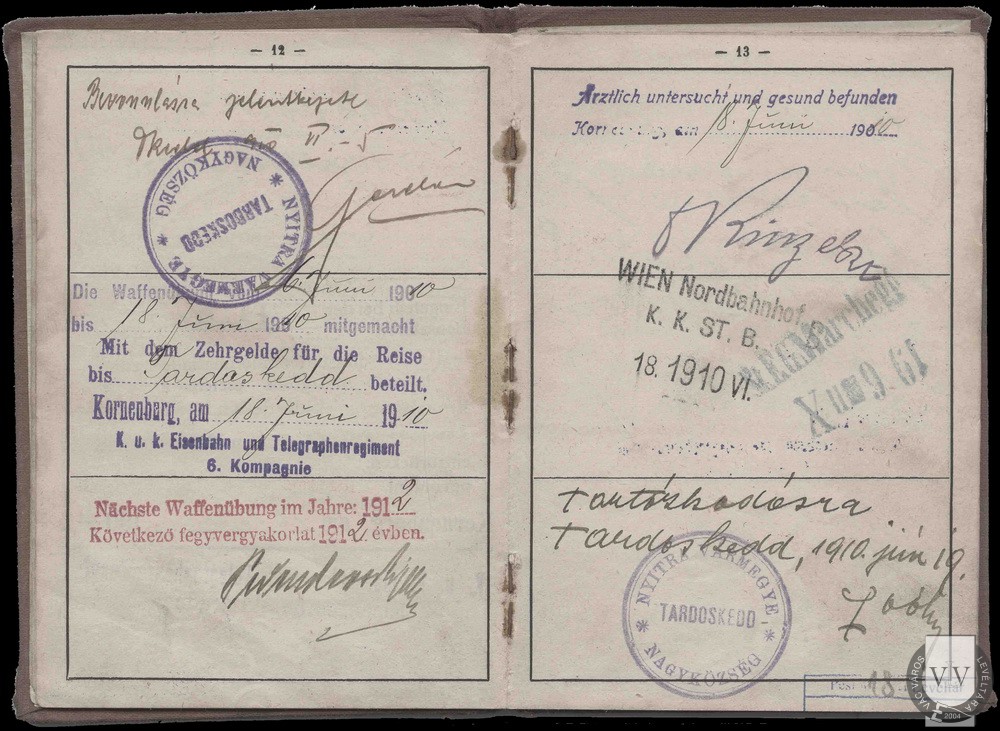 — 12 —
Bevonulásra jelentkezett
VI. - 5
NYITRA VÁRMEGYE * NAGYKÖZSÉG *
TARDOSKEDD
Die Waffenübung Juni 1910
bis 18. Juni 1910 mitgemacht
Mit dem Zehrgelde für die Reise
bis Tardoskedd beteilt.
Korneuburg, am 18. Juni 1910
K. u. k. Eisenbahn und Telegraphenregiment
6. Kompagnie
Nächste Waffenübung im Jahre: 1912
Következő fegyvergyakorlat 1912. évben.
— 13 —
Ärztlich untersucht und gesund befunden
Korneuburg, am 18. Juni 1910
WIEN Nordbahnhof
K. K. ST. B.
18. 1910 VI.
Tartózkodásra
Tardoskedd, 1910. jún 19.
* NYITRA VÁRMEGYE, * NAGYKÖZSÉG
TARDOSKEDD
VÁG VÁROS LEVÉLTÁRA
VV
2004